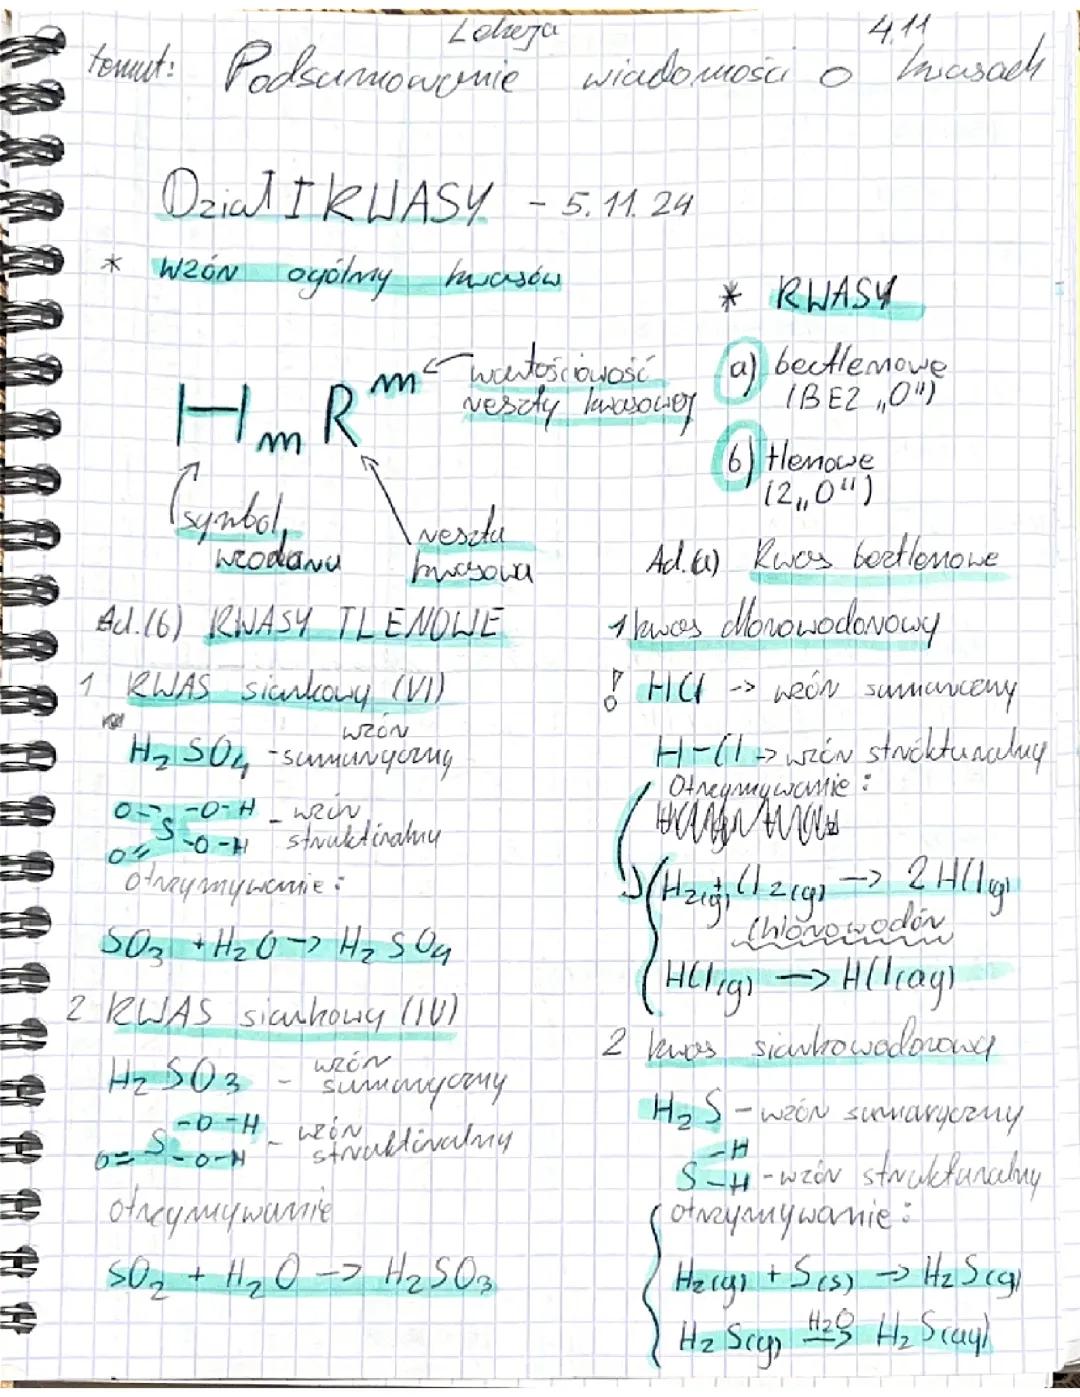 Lekcja 4.11
temat: Podsumowanie wiadomości o kwasach
Dział I KWASY - 5.11.24
* wzór ogólny kwasów
HmR^m
wartościowość
reszty kwasowej
symbol
wodoru
reszta
kwasowa
* KWASY
a) beztlenowe
(BEZ „O")
b) tlenowe
(Z „O")
Ad.(b) KWASY TLENOWE
1 KWAS siarkowy (VI)
H₂SO₄ - wzór
sumaryczny
O= -O-H - wzór
S
O= -O-H strukturalny
otrzymywanie:
SO₃ + H₂O -> H₂SO₄
2 KWAS siarkowy (IV)
H₂SO₃ - wzór
sumaryczny
-O-H - wzór
O= S -O-H strukturalny
otrzymywanie
SO₂ + H₂O -> H₂SO₃
Ad.(a) Kwas beztlenowe
1 kwas chlorowodorowy
! HCl -> wzór sumaryczny
H-Cl -> wzór strukturalny
Otrzymywanie:
H₂(g) + Cl₂(g) -> 2HCl(g)
chlorowodór
HCl(g) -> HCl(aq)
2 kwas siarkowodorowy
H₂S - wzór sumaryczny
-H
S -H - wzór strukturalny
otrzymywanie:
H₂(g) + S(s) -> H₂S(g)
H₂S(g) H₂O -> H₂S(aq)